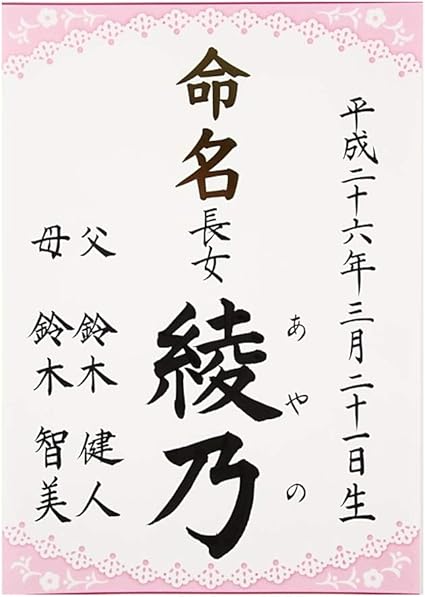 平成二十六年三月二十一日生
命名
長女
綾乃
あやの
父 鈴木 健人
母 鈴木 智美